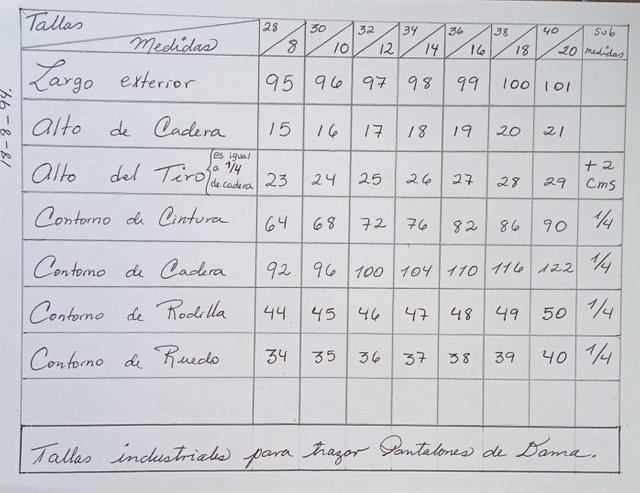 Tallas 28/8 30/10 32/12 34/14 36/16 38/18 40/20 Sub medidas
Medidas
Largo exterior 95 96 97 98 99 100 101
Alto de Cadera 15 16 17 18 19 20 21
Alto del Tiro {es igual a 1/4 de cadera 23 24 25 26 27 28 29 + 2 cms
Contorno de Cintura 64 68 72 76 82 86 90 1/4
Contorno de Cadera 92 96 100 104 110 116 122 1/4
Contorno de Rodilla 44 45 46 47 48 49 50 1/4
Contorno de Ruedo 34 35 36 37 38 39 40 1/4
Tallas industriales para trazar Pantalones de Dama.
18-8-94.